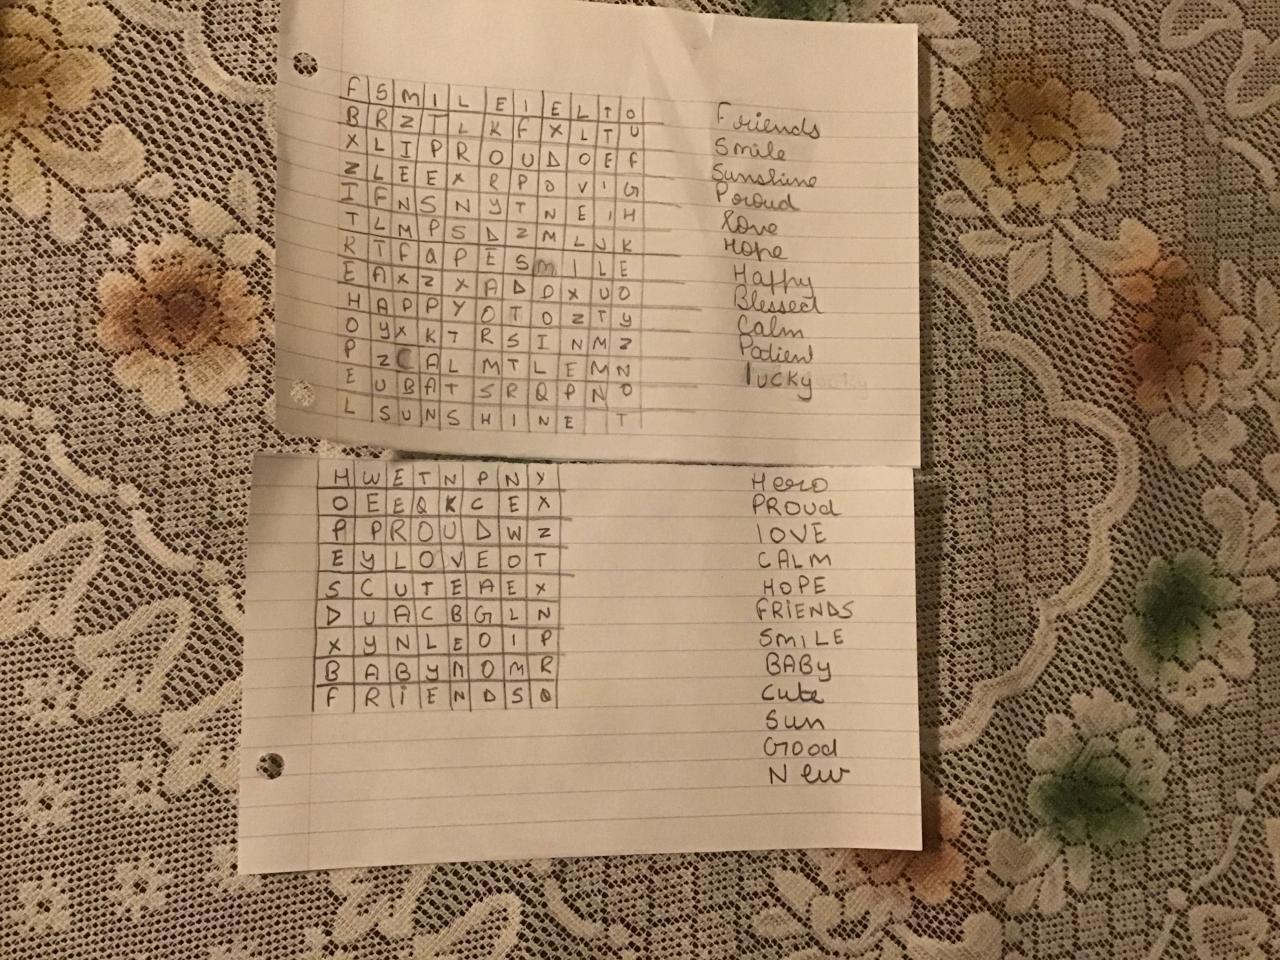 F S M I L E I E L T O
B R Z T L K F X L T U
X L I P R O U D O E F
Z L E E X R P O V I G
I F N S N Y T N E I H
T L M P S D Z M L U K
R T F Q P E S M I L E
E A X Z X A D D X U O
H A P P Y O T O Z T Y
O Y X K T R S I N M Z
P Z C A L M T L E M N
E U B A T S R Q P N O
L S U N S H I N E T
Friends
Smile
Sunshine
Proud
Love
Hope
Happy
Blessed
Calm
Patient
lucky
H W E T N P N Y
O E E Q K C E X
P P R O U D W Z
E Y L O V E O T
S C U T E A E X
D U A C B G L N
X Y N L E O I P
B A B Y N O M R
F R I E N D S Q
Hero
PROUd
lOVE
CALM
HOPE
FRIENDS
SMILE
BABy
Cute
Sun
Good
New